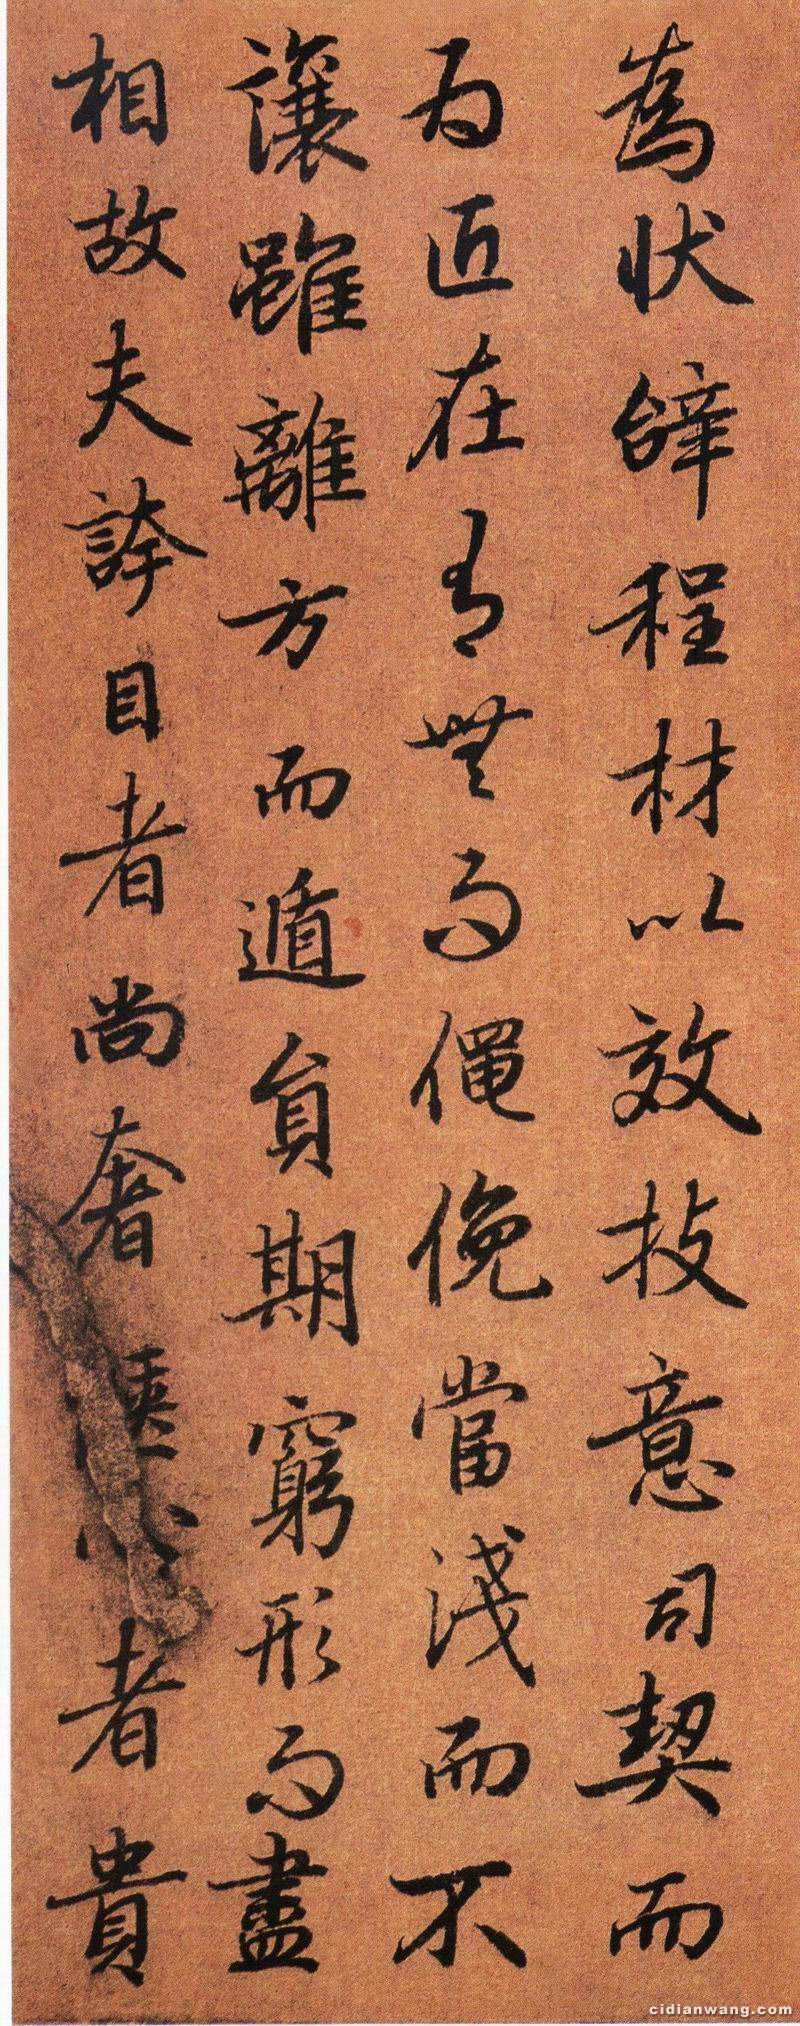 為狀辝程材以效技意司契而
為匠在有無而僶俛當淺而不
讓雖離方而遁員期窮形而盡
相故夫誇目者尚奢愜心者貴
cidianwang.com